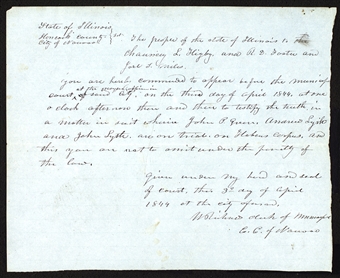 State of Illinois
Hancock County } Sct.
City of Nauvoo
The people of the state of Illinois to
Chauncey L. Higby and R. D. Foster and
Joel S. Miles
you are hereby commanded to appear before the municipal
at the mayors office in
court of said City on the third day of April 1844. at one
o clock afternoon then and there to testify the truth in
a matter in suit wherein John P Greene Andrew Lytle
and John Lytle are on trial on Habeas Corpus, and
this you are not to omit under the penalty of
the law.
Given under my hand and seal
of court, this 3d day of April
1844 at the city of
W Richards clerk of Municipal
C. of Nauvoo